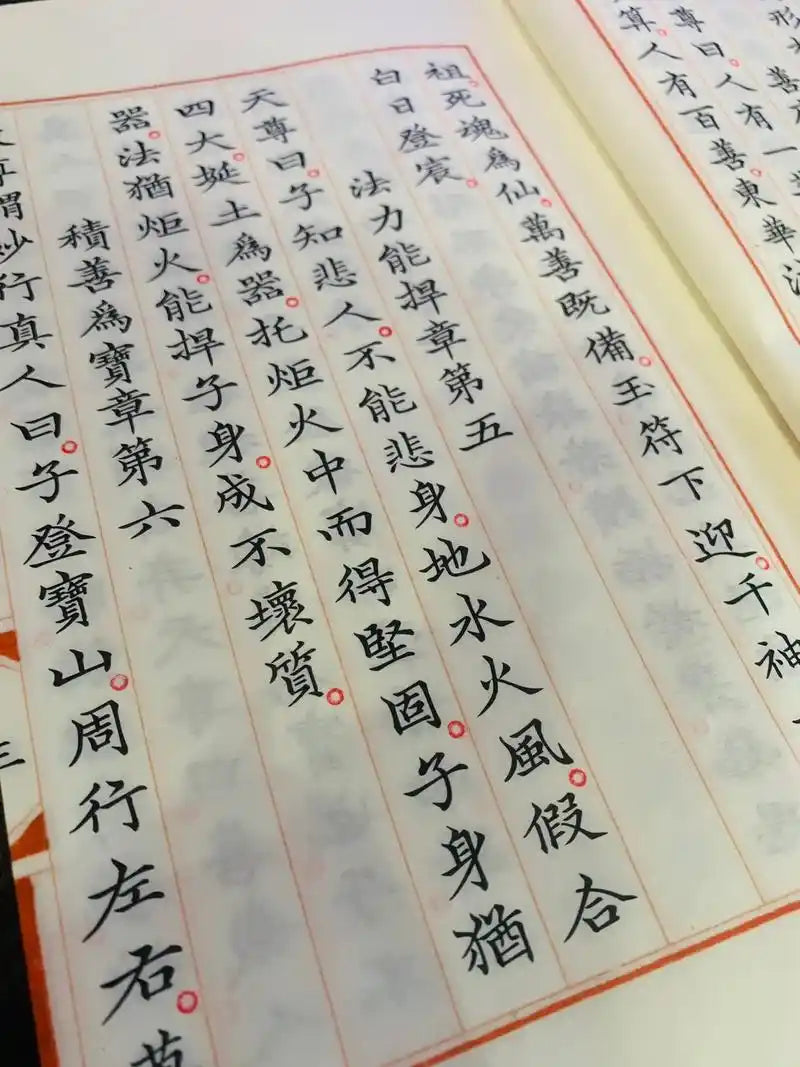 尊曰。人有一
算。人有百善。東華
祖。死魂爲仙。萬善既備。玉符下迎。千神
白日登宸。
法力能捍章第五
天尊曰。子知悲人。不能悲身。地水火風。假合
四大。埏土爲器。托炬火中而得堅固。子身猶
器。法猶炬火。能捍子身。成不壞質。
積善爲寶章第六
尊謂妙行真人曰。子登寶山。周行左右。
三